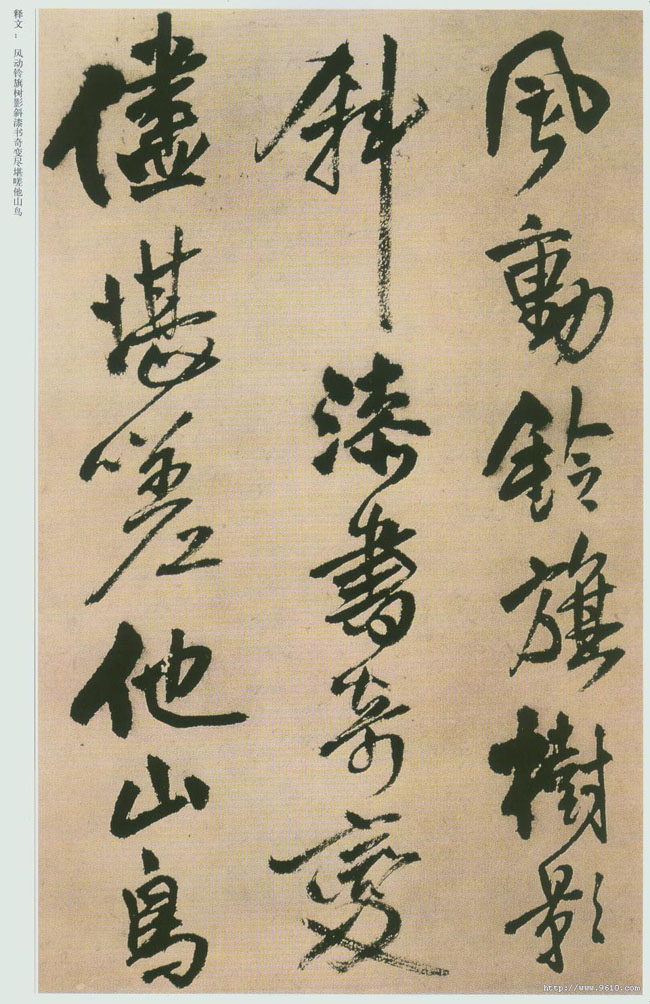 風動鈴旗樹影
斜漆書奇變
儘堪嗟他山鳥
释文: 风动铃旗树影斜漆书奇变尽堪嗟他山鸟
http://www.9610.com